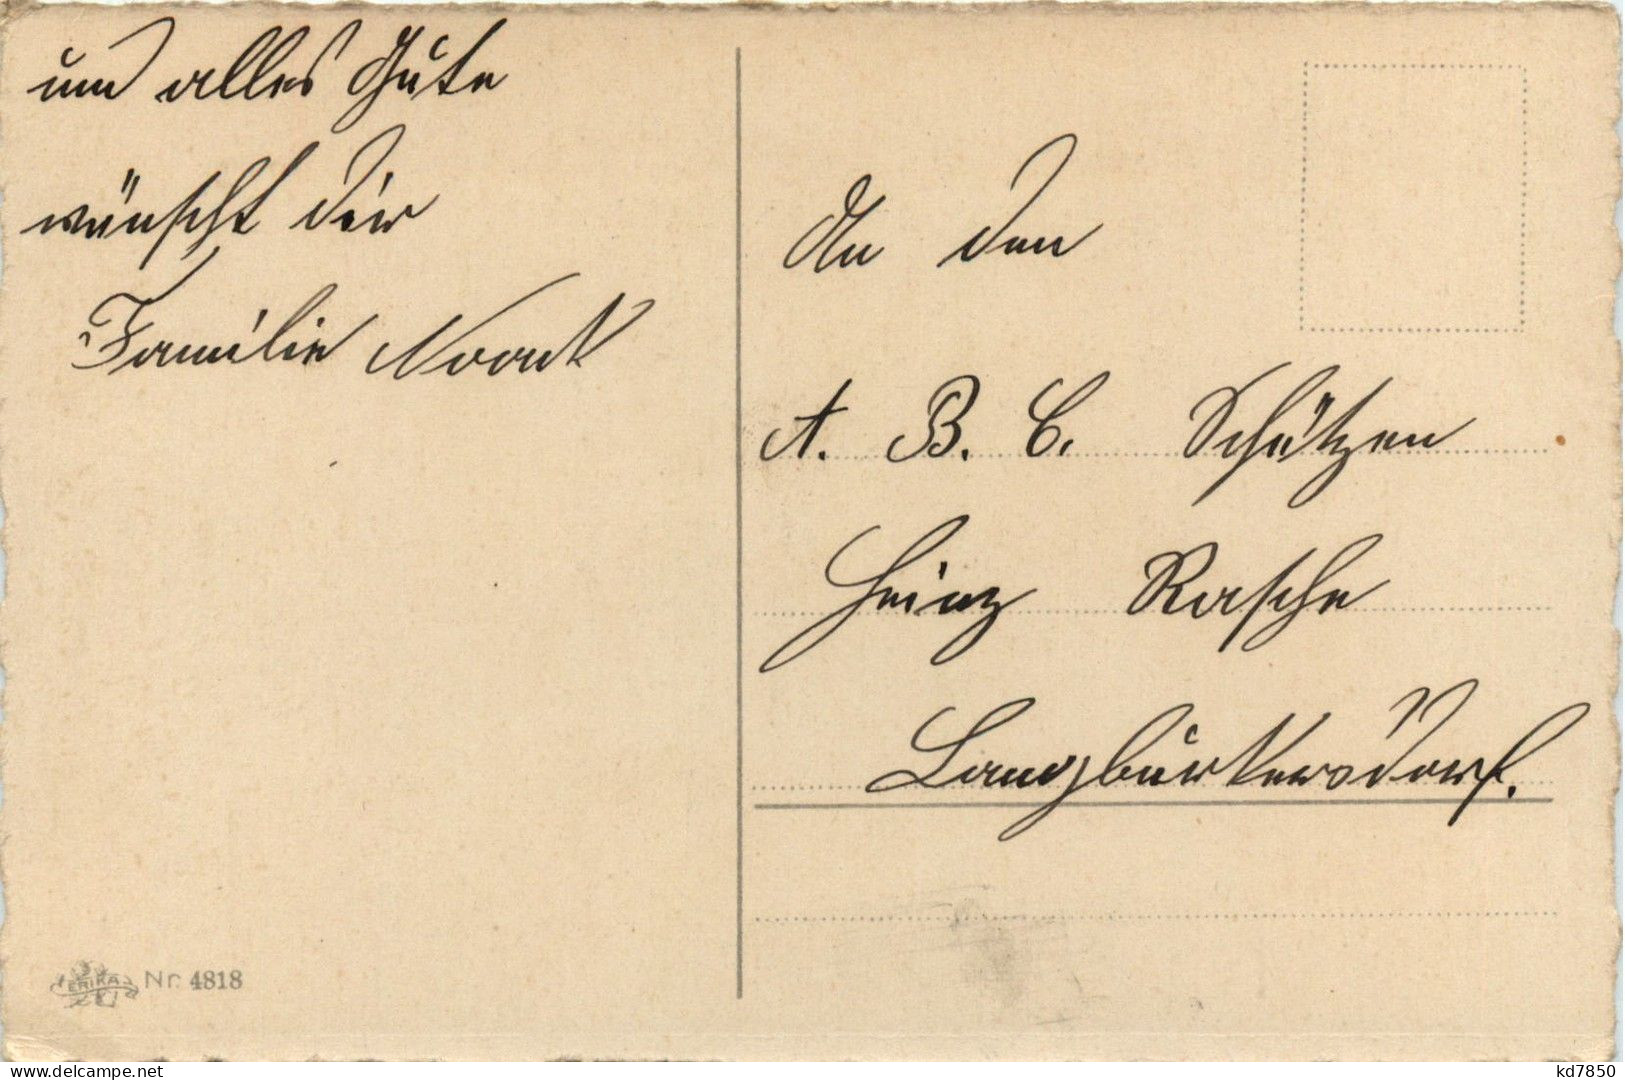 und alles Gute
wünscht dir
Familie Noack
An den
A. B. C. Schützen
Heinz Rasche
Langburkersdorf.
ERIKA Nr. 4818
delcampe.net
kd7850